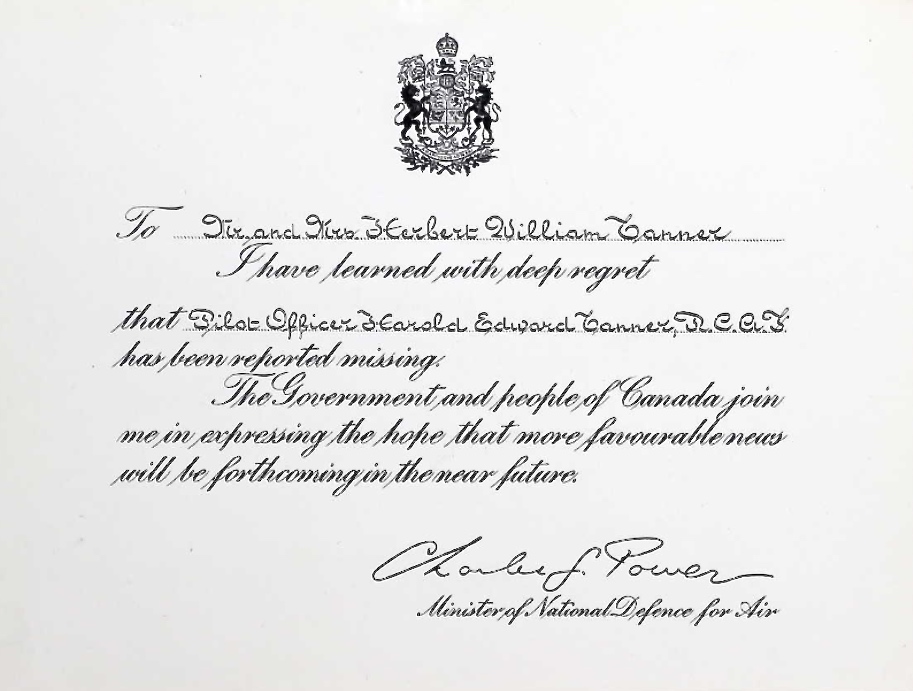 To Mr. and Mrs. Herbert William Tanner
I have learned with deep regret
that Pilot Officer Harold Edward Tanner, R.C.A.F.
has been reported missing.
The Government and people of Canada join
me in expressing the hope that more favourable news
will be forthcoming in the near future.
Charles G. Power
Minister of National Defence for Air